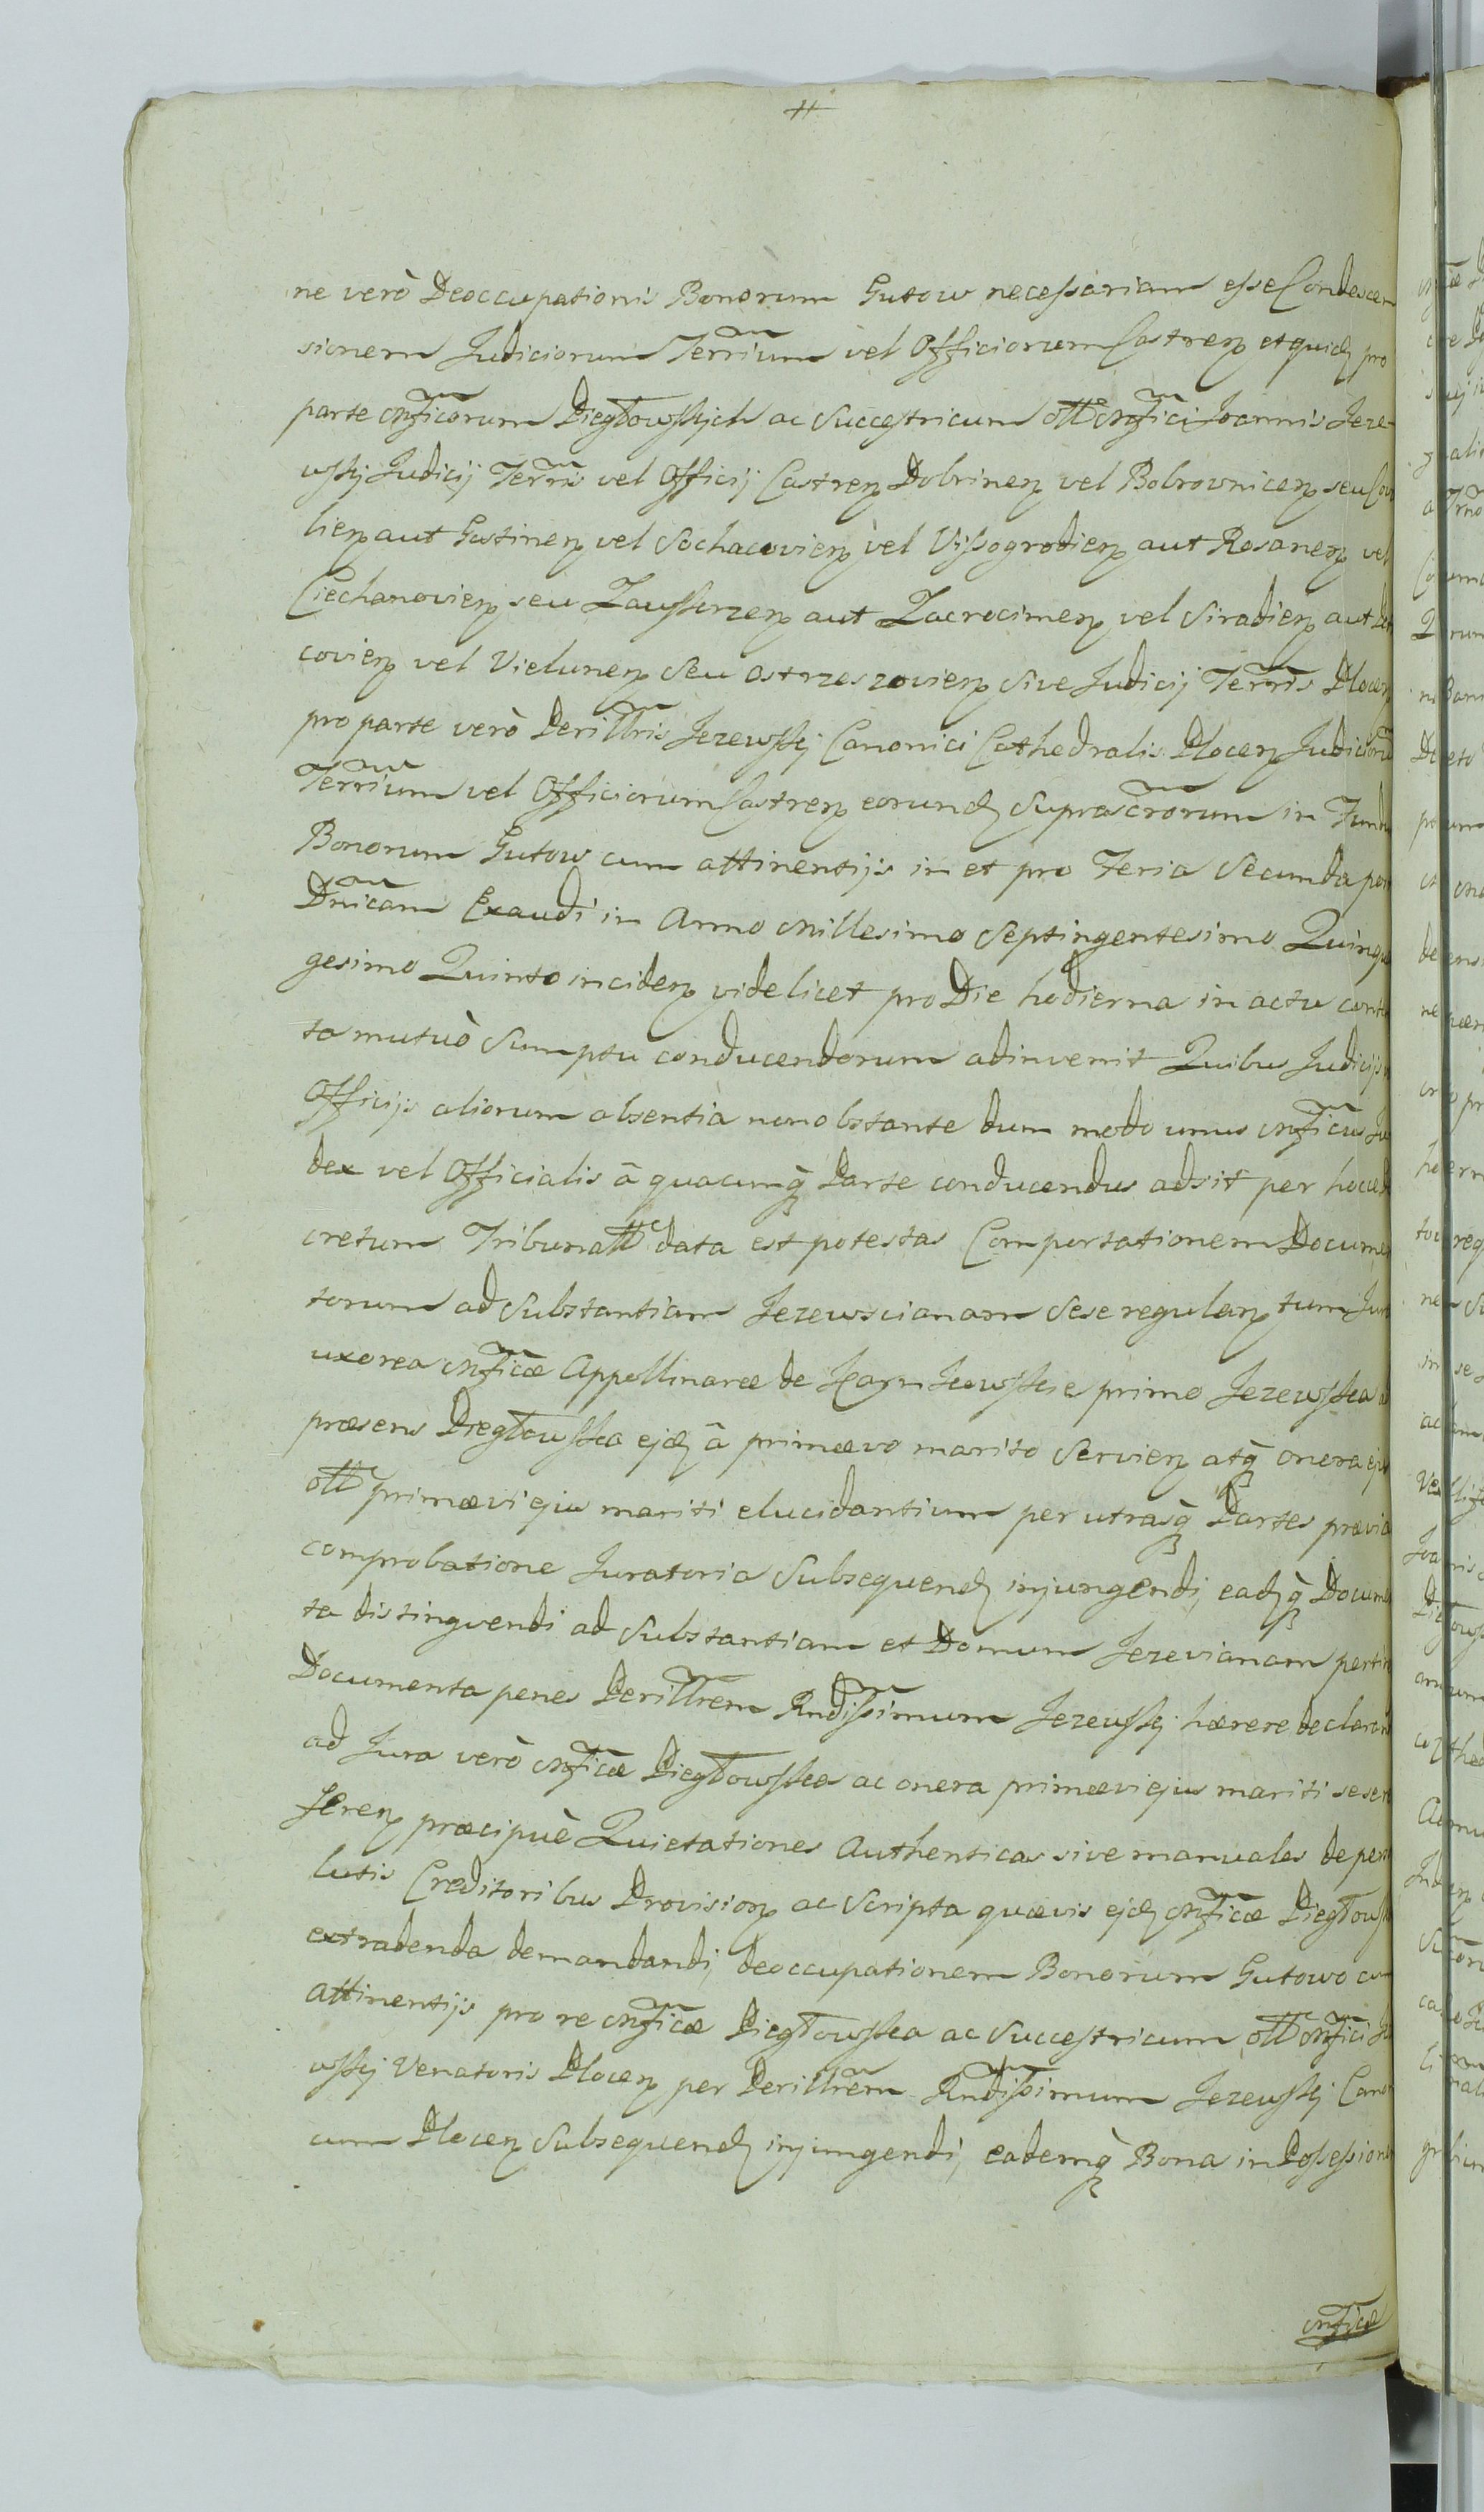 ne verò Deoccupationis Bonorum Gutow necessariam esse Condescen
sionem Judiciorum Terrium vel Officiorum Castren et quid pro
parte Mficorum Diegtowskych ac Successtricum olt Mfici Joannis Jeze-
wskj Judicij Terris vel Officij Castren Dobrinen vel Bobrovnicen seu Cov
lien aut Gostinen vel Sochacovien vel Vissogrodien aut Rosanen vel
Ciechanovien seu Zawskrzen aut Zacrocimen vel Siradien aut
covien vel Vielunen seu Ostrzeszovien sive Judicij Terris Plocen
pro parte verò Perilltris Jezewskj Canonici Cathedralis Plocen Judiciorū
Terrium vel Officiorum Castren eorund suprascrorum in Fund
Bonorum Gutow cum attinentijs in et pro Feria Secunda pos
Dnicam Exaudi in Anno Millesimo Septingentesimo Quinqua
gesimo Quinto inciden videlicet pro Die hodierna in actu cont
to mutuò Sumptu conducendorum adinvenit Quibus Judicijs
Officijs aliorum absentià nonobstante dum modo unus Mficus Ju
dex vel Officialis â quacunq̀ Parte conducendus adsit per hocce de
cretum Tribunatt data est potestas Comportationem Docume
torum ad Substantiam Jezewscianam sese regulan tum Jur
uxorea Mficæ Appollinaræ de primo Jezewska
præsens Diegtowska ejd â primævo marito servien atq̀ onera eju
olt primævi ejus mariti elucidantium per utrasq̀ Partes prævia
comprobatione Juratoria Subsequend injungendi, eadq̀ Docume
ta distingvendi ad Substantiam et Domum Jezevianam pertin
Documenta penes Perilltrem Rndissimum Jezewskj hærere declaran
ad Jura verò Mficæ Diegtowska ac onera primævi ejus mariti sese re
feren præcipuè Quietationes Authenticas sive manuales de perso
lutis Creditoribus Provision ac Scripta quævis ejd Mficæ Diegtows
extradenda demandandi, deoccupationem Bonorum Gutowo cu
attinentijs pro re Mficæ Diegtowska ac Successtricum olt Mfici Je
wskj Venatoris Plocen per Perilltrem Rndissimum Jezewskj Cano
cum Plocen Subsequend injungendi, eademq̀ Bona in Possessione
Mficæ